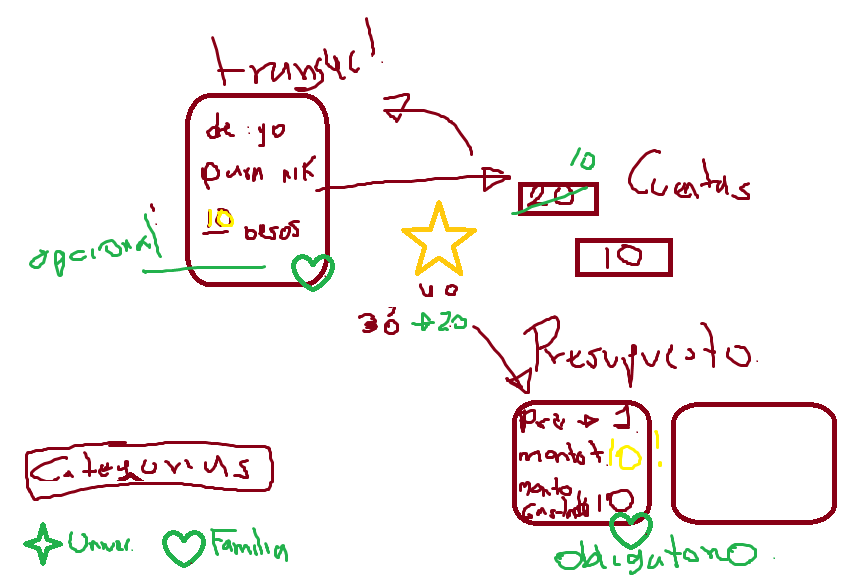 transfe!
de yo
para MK
10 besos
opcional
10
20
Cuentas
10
yo
30 → 20
Presupuesto
Pre → 1
monto t. 10!
monto
Gastado 10
obligatorio
Categorias
Univer.
Familia